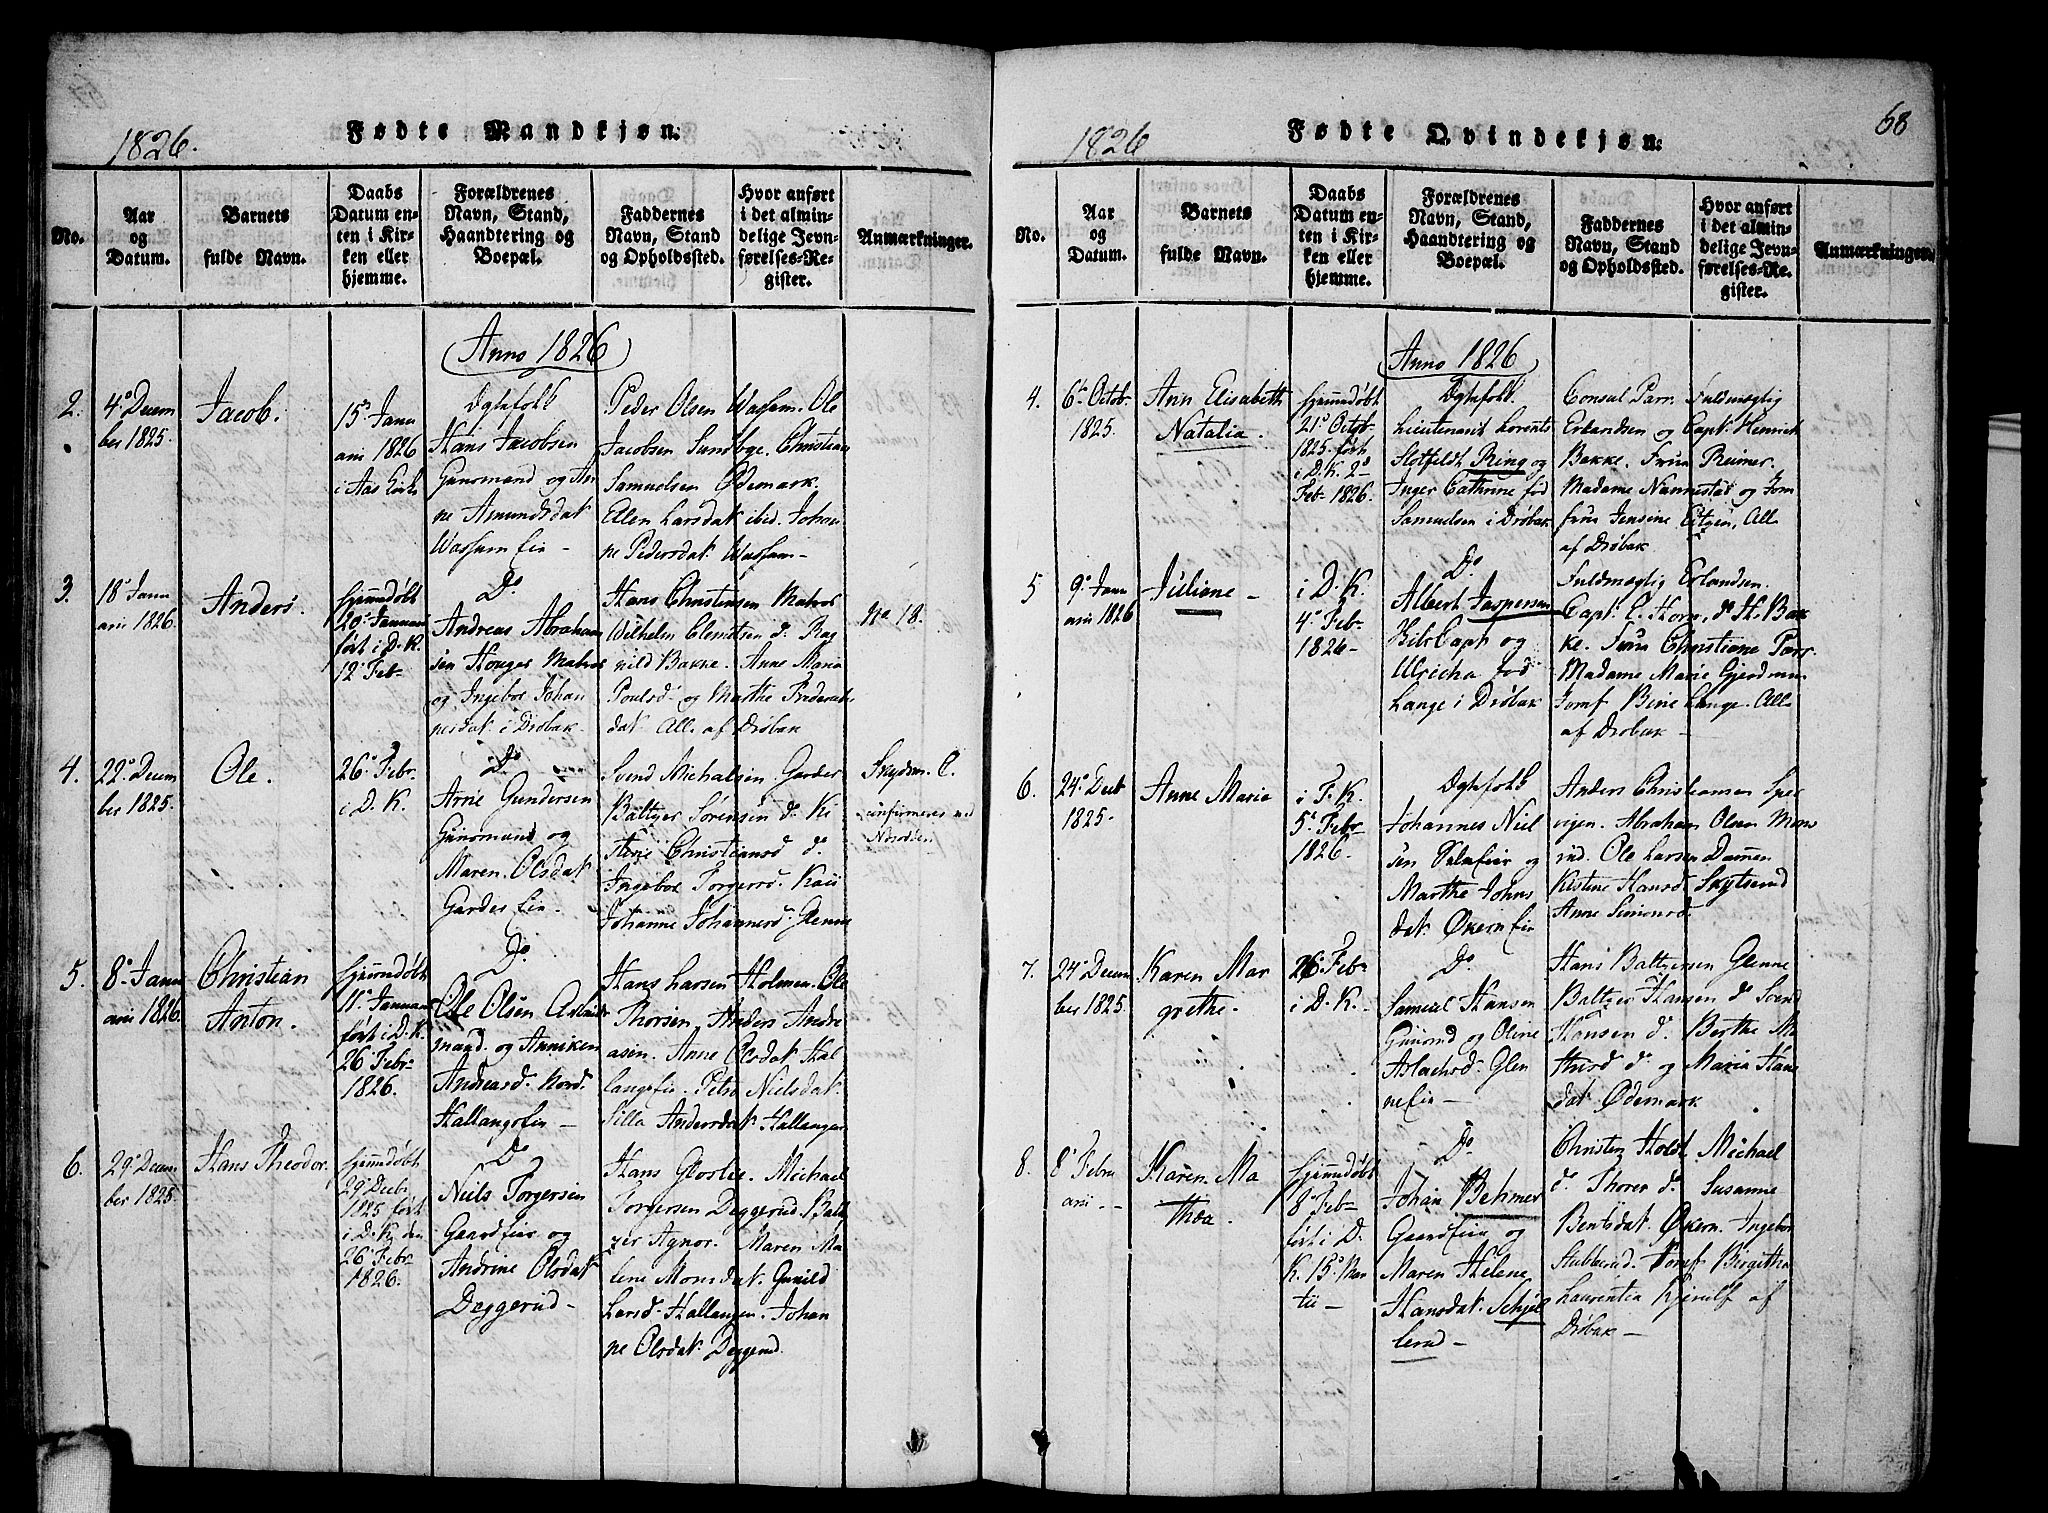 1826.
Fødte Mandkjøn.
No.
Aar
og
Datum.
Barnets
fulde Navn.
Daabs
Datum en-
ten i Kir-
ken eller
hjemme.
Forældrenes
Navn, Stand,
Haandtering og
Boepæl.
Faddernes
Navn, Stand
og Opholdssted.
Hvor anført
i det almin-
delige Jevn-
førelses-Re-
gister.
Anmærkninger.
Anno 1826
2.
4de Decem
ber 1825.
Jacob.
15de Janu
arii 1826
i Aas Kirke
Ægtefolk
Hans Jacobsen
Gaardmand og An
ne Amundsdat
Wassum Eie -
Peder Olsen Wassum. Ole
Jacobsen Sundbye. Christian
Samuelsen Ødemark.
Ellen Larsdat ibid. Johan
ne Pedersdat Wassum -
3.
18de Janu
arii 1826.
Anders.
hjemmdøbt
20de Januarii
ført i D. K.
12te Feb
Do
Andreas Abraham
sen Matros
og Ingebor Johan
nesdat i Drøbak.
Hans Christensen Matros
Wilhelm Clemetsen do Rag
nild Bakke. Anne Maria
Poulsd og Marthe Frederichs
dat All. af Drøbak
No 18.
4.
22de Decem
ber 1825.
Ole.
26de Febr
i D. K.
Do
Arne Gundersen
Huusmand og
Maren Olsdat
Garder Eie.
Svend Michalsen Garder
Baltzer Sørensen do Ki
Christiansd do
Ingebor Torgersd.
Johanne Johannesd. Glenne
5.
8de Janu
arii 1826.
Christian
Anton.
hjemmdøbt
11te Januarii
ført i D. K.
26de Febr
1826.
Do
Ole Olsen Arbeids
mand. og Anniken
Andreasd. Nord
Hallangs Eie -
Hans Larsen Holmen. Ole
Thorsen. Anders Andre
asen. Anne Olsdat Hal
langs Eie. Petro Nielsdat.
Silla Andersdat. Hallangen
6.
29de Decem
ber 1825.
Hans Theodor.
hjemmdøbt
29de Decbr
1825 ført
i D. K. den
26de Febr
1826.
Do
Niels Torgersen
Gaardeier og
Andrine Olsdat
Deggerud -
Hans Glorbe. Michael
Torgersen Deggerud. Balt
zer Agnor. Maren Ma
lene Monsdat. Gunild
Larsd. Hallangen. Johan
ne Olsdat Deggerud.
1826
Fødte Qvindekjøn.
68
No.
Aar
og
Datum.
Barnets
fulde Navn.
Daabs
Datum en-
ten i Kir-
ken eller
hjemme.
Forældrenes
Navn, Stand,
Haandtering og
Boepæl.
Faddernes
Navn, Stand
og Opholdssted.
Hvor anført
i det almin-
delige Jevn-
førelses-Re-
gister.
Anmærkninger.
Anno 1826
4.
6te Octob.
1825.
Ann Elisabeth
Natalia.
hjemmdøbt
21de Octob
1825. ført
i D. K. 2de
Feb 1826.
Ægtefolk.
Lieutenant Lorents
Slotfeldt Ring og
Inger Cathrine fød
Samuelsen i Drøbak
Consul Parr. Fuldmægtig
Erlandsen og Capt. Henrich
Bakke. Frue Reimer.
Madame Nannestad og Jom
frue Jensine Eitzen, All.
af Drøbak
5
9de Janu
arii 1826
Juliane -
i D. K.
4de Feb
1826 -
Do.
Albert Jaspersen
Skibs Capt og
Ulricha fød
Lange i Drøbak
Fuldmægtig Erlandsen.
Capt. E. Horn, do H. Bak
ke. Frue Christiane Parr
Madame Marie
Jomf Bine Lange. All.
af Drøbak -
6.
24de Decb
1825.
Anne Maria
i F. K.
5te Febr
1826.
Ægtefolk
Johannes Niel
sen og
Marthe Johns
dat. Økern Eie
Anders Christiansen Sper
vigen. Abraham Olsen
Ole Larsen Dammen
Kistine Hansd Skytserud
Anne Simonsd.
7.
24de Decem
ber 1825.
Karen Mar
grethe.
26de Feb
i D. K.
Do.
Samuel Hansen
Huusmd og Oline
Aslachsd. Glen
ne Eie -
Hans Baltzersen Glenne
Baltzer Hansen do Svend
Hansen do Berthe Ma
thisd do og Maria Hans
dat. Ødemark
8.
8de Febru
arii -
Karen Ma
thea.
hjemmdøbt
8de Feb
ført i D.
K. 15de Mar
tii -
Do
Johan Behmer
Gaardeier og
Maren Helene
Hansdat. Schjel
lerud -
Christen Holdt. Michael
do. Thorer do. Susanne
Bentsdat. Økern. Ingebor
Stubberud. Jomf Birgitha
Laurentia Kjerulf af
Drøbak -